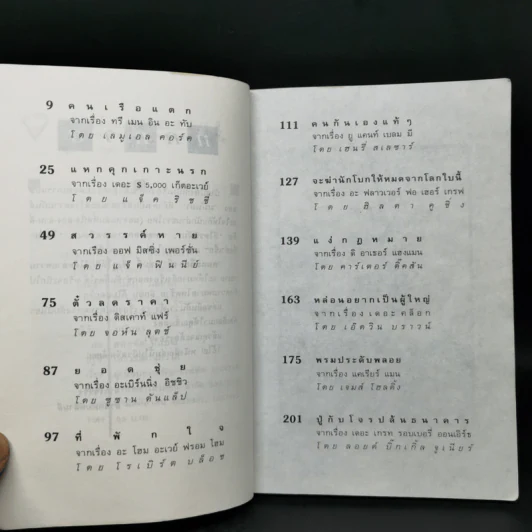 9 คนเรือแตก
จากเรื่อง ทรี เมน อิน อะ ทับ
โดย เลมูเอล คอร์ค
25 แหกคุกเกาะนรก
จากเรื่อง เดอะ $ 5,000 เก็ตอะเวย์
โดย แจ็ค ริชชี่
49 สวรรค์หาย
จากเรื่อง ออฟ มิสซิ่ง เพอร์ซั่น
โดย แจ็ค ฟินนีย์
75 ตั๋วลดราคา
จากเรื่อง ดิสเคาท์ แฟร์
โดย จอห์น ลุตซ์
87 ยอดซุ่ย
จากเรื่อง อะเบิร์นนิ่ง อิชชิว
โดย ซูซาน ดันแล็ป
97 ที่พักใจ
จากเรื่อง อะ โฮม อะเวย์ ฟรอม โฮม
โดย โรเบิร์ต บล็อช
111 คนกันเองแท้ๆ
จากเรื่อง ยู แคนท์ เบลม มี
โดย เฮนรี่ สเลซาร์
127 จะฆ่านักโบกให้หมดจากโลกใบนี้
จากเรื่อง อะ ฟลาวเวอร์ ฟอ เฮอร์ เกรฟ
โดย ฮิลดา คูชิ่ง
139 แง่กฎหมาย
จากเรื่อง ดิ อาเธอร์ แฮงแมน
โดย คาร์เตอร์ ดิ๊คสัน
163 หล่อนอยากเป็นผู้ใหญ่
จากเรื่อง เดอะ คล็อก
โดย เอ๊ดวิน บราวน์
175 พรมประดับพลอย
จากเรื่อง แคเรียร์ แมน
โดย เจมส์ โฮลดิ้ง
201 ปู่กับโจรปล้นธนาคาร
จากเรื่อง เดอะ เกรท รอบเบอรี่ ออนเอิร์ธ
โดย ลอยด์ บิ๊กเกิ้ล จูเนียร์